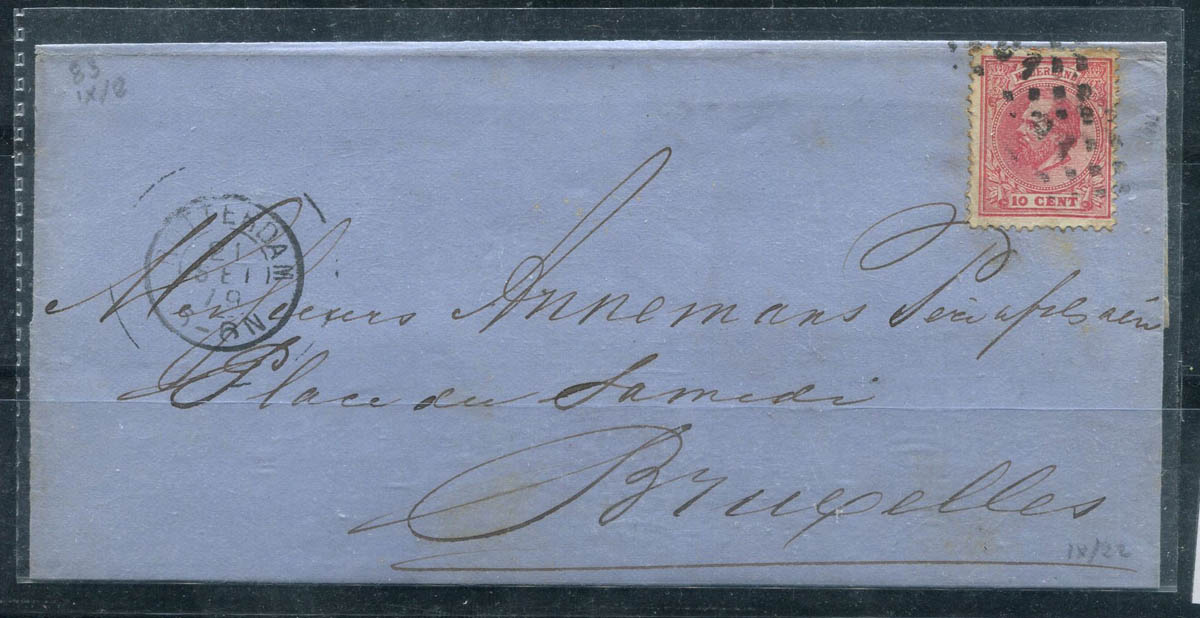 83
IX/8
NEDERLAND
10 CENT
91
TTERDAM
21
SE
79
Messieurs Annemans Père & fils aîné
Place du Samedi
Bruxelles
IX/22